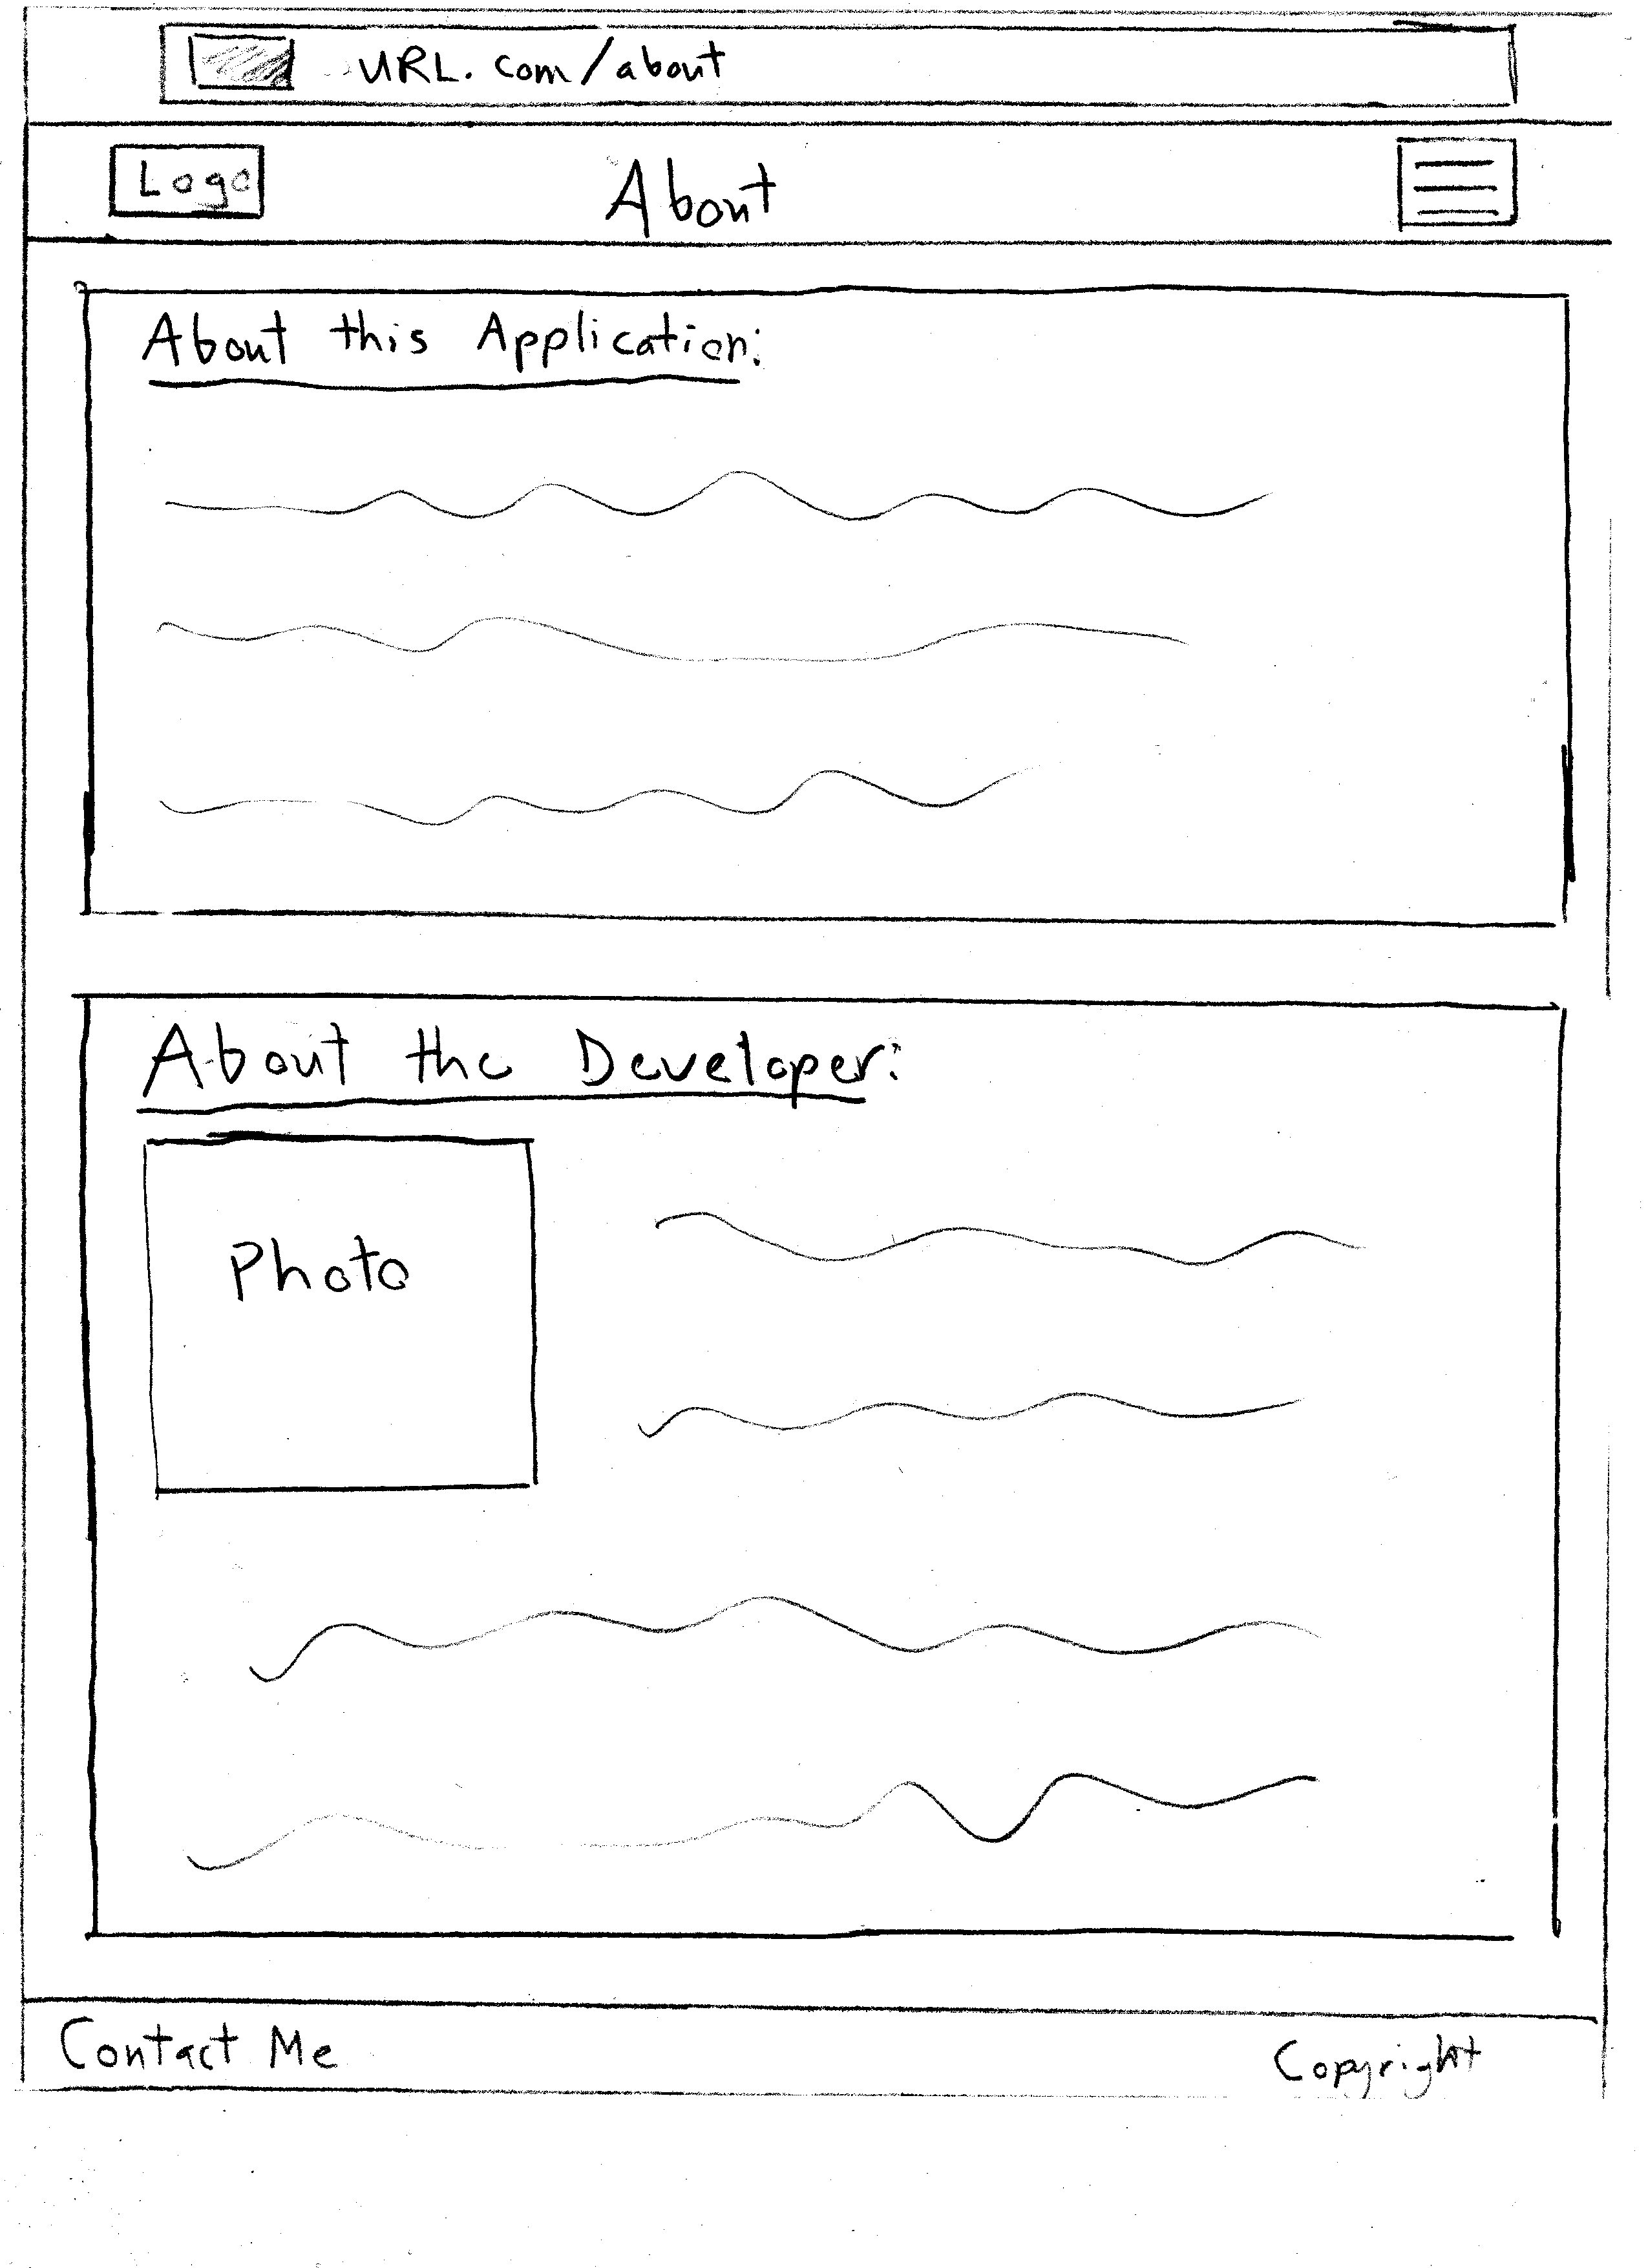 URL.com/about
Logo
About
About this Application:
About the Developer:
Photo
Contact Me
Copyright